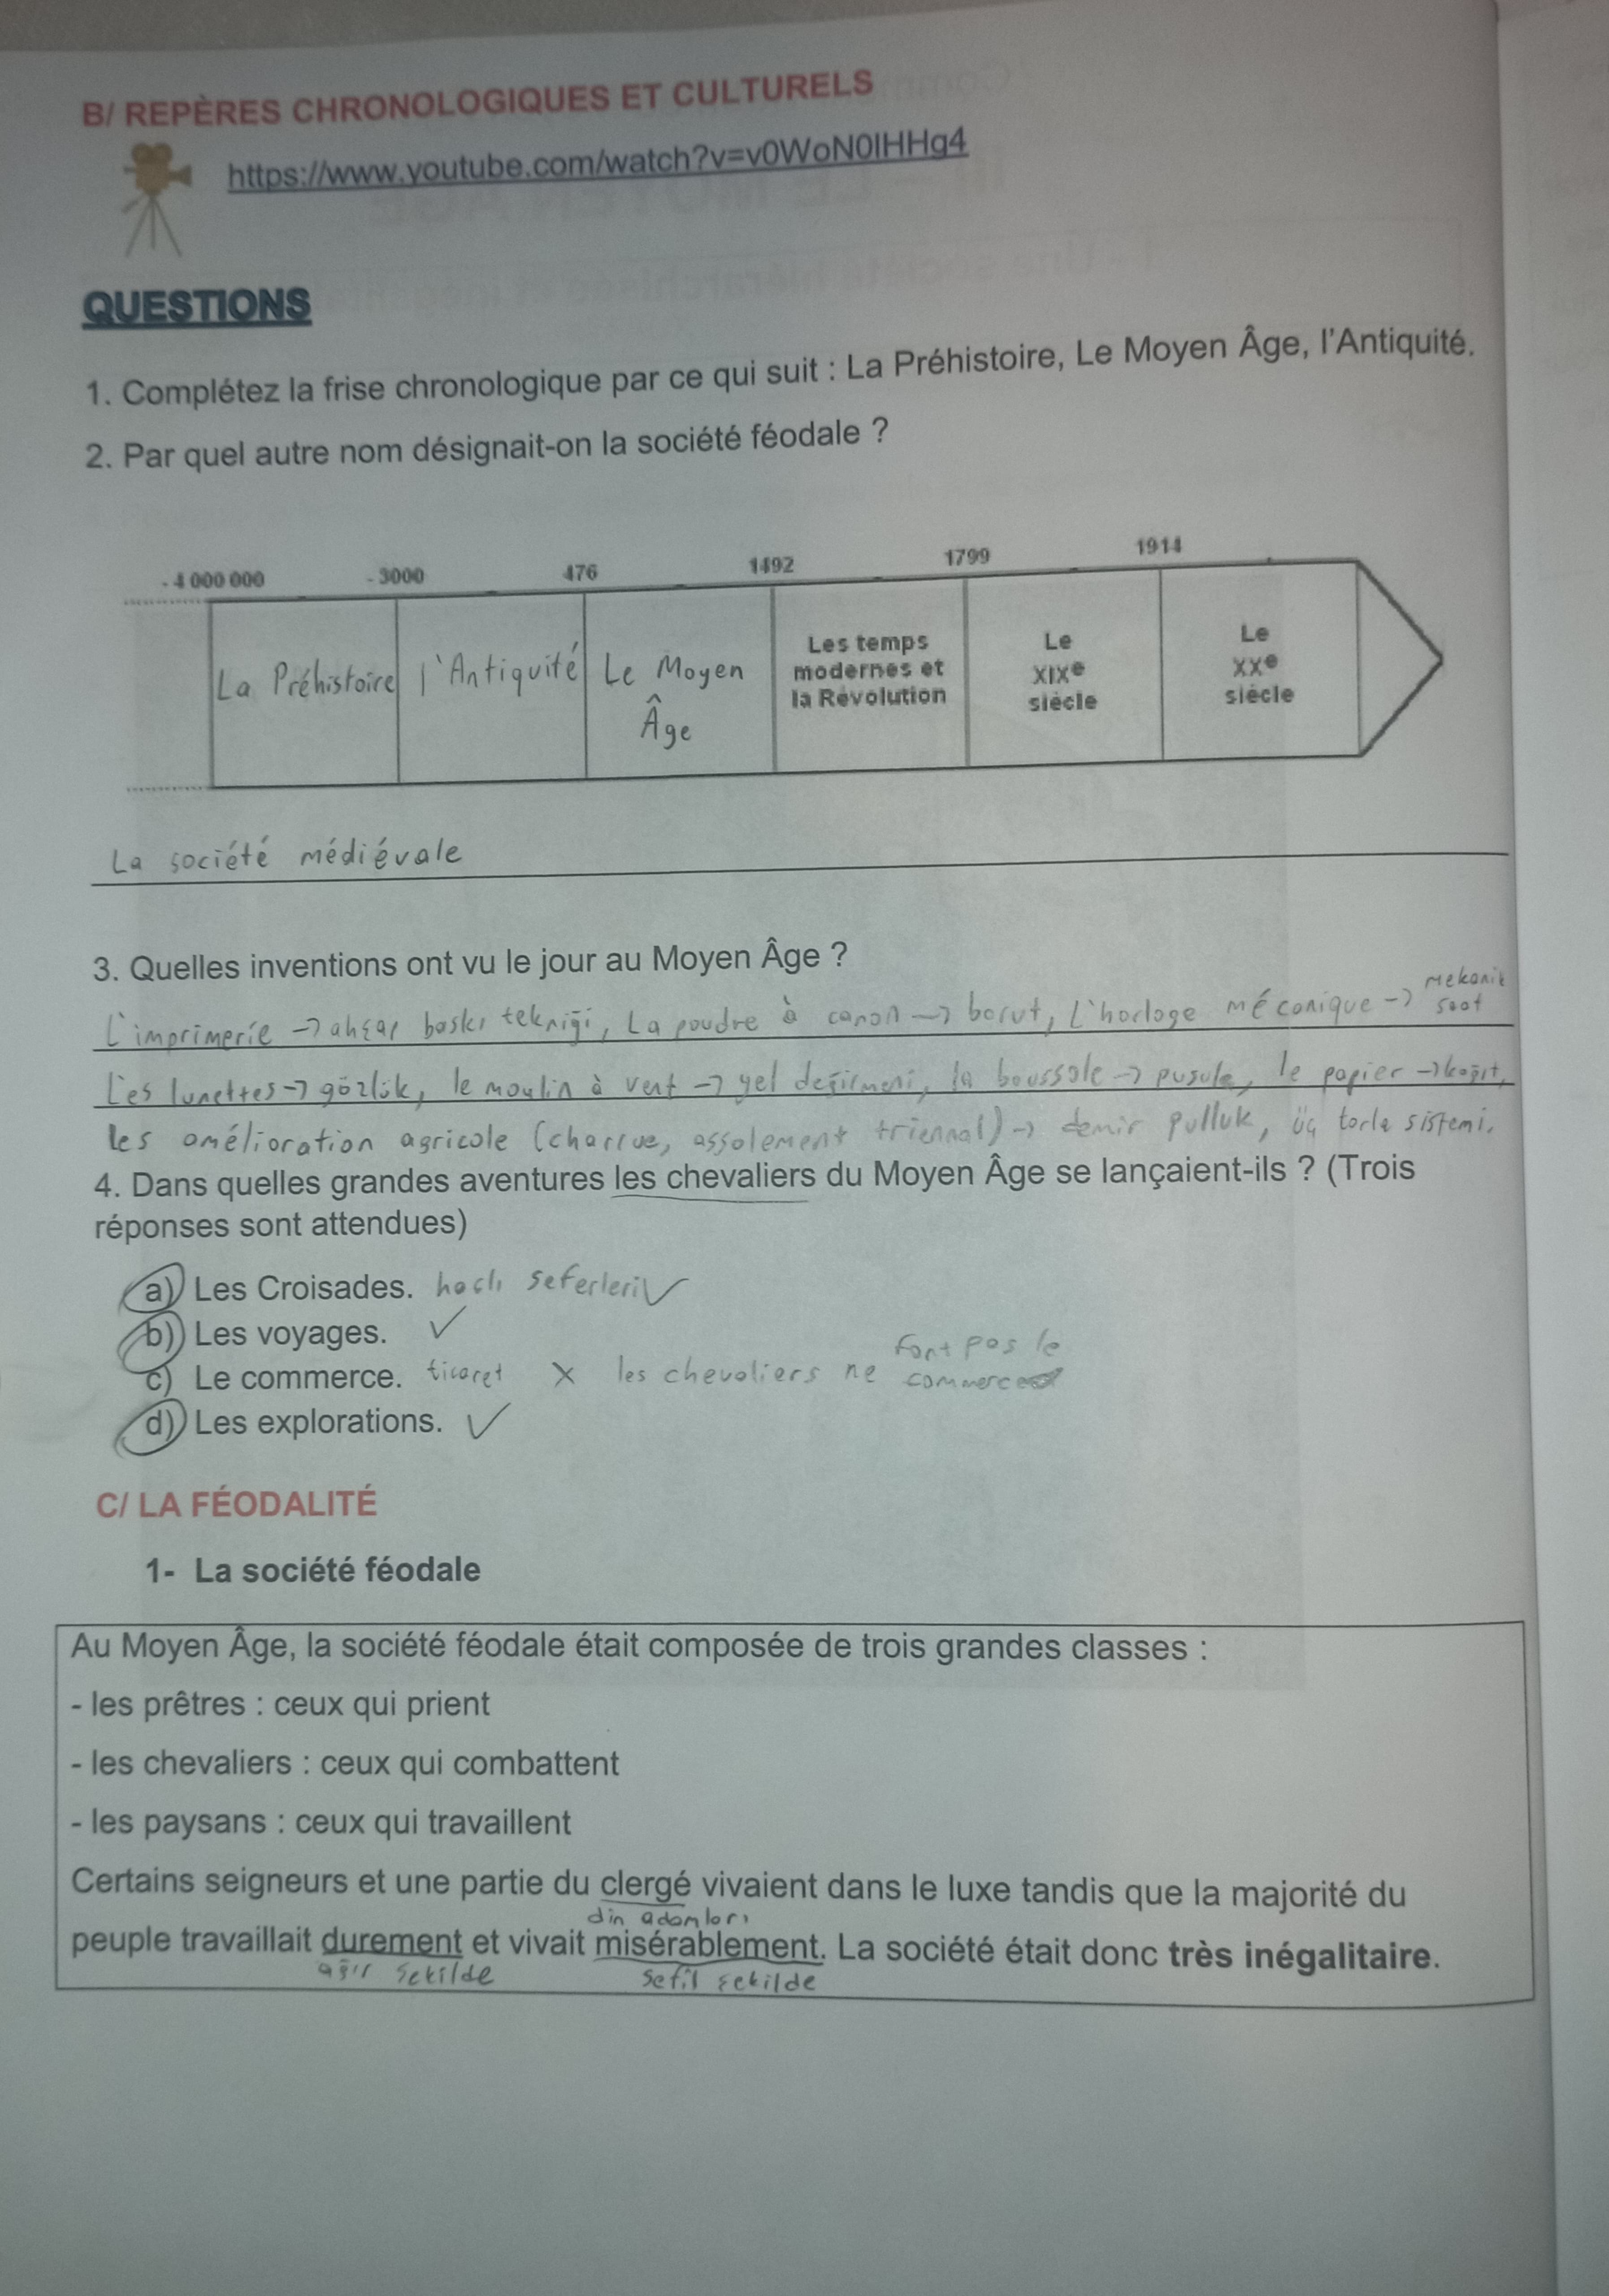 B/ REPÈRES CHRONOLOGIQUES ET CULTURELS
https://www.youtube.com/watch?v=v0WoN0IHHg4
QUESTIONS
1. Complétez la frise chronologique par ce qui suit : La Préhistoire, Le Moyen Âge, l'Antiquité.
2. Par quel autre nom désignait-on la société féodale ?
- 4 000 000 - 3000 476 1492 1799 1914
La Préhistoire
l'Antiquité
Le Moyen
Âge
Les temps
modernes et
la Révolution
Le
XIXe
siècle
Le
XXe
siècle
La société médiévale
3. Quelles inventions ont vu le jour au Moyen Âge ?
L'imprimerie → ahşap baskı tekniği, La poudre à canon → barut, L'horloge mécanique → mekanik saat
Les lunettes → gözlük, le moulin à vent → yel değirmeni, la boussole → pusula, le papier → kağıt,
les amélioration agricole (charrue, assolement triennal) → demir pulluk, üç tarla sistemi.
4. Dans quelles grandes aventures les chevaliers du Moyen Âge se lançaient-ils ? (Trois
réponses sont attendues)
a) Les Croisades. haçlı seferleri ✓
b) Les voyages. ✓
c) Le commerce. ticaret X les chevaliers ne font pas le commerce
d) Les explorations. ✓
C/ LA FÉODALITÉ
1- La société féodale
Au Moyen Âge, la société féodale était composée de trois grandes classes :
- les prêtres : ceux qui prient
- les chevaliers : ceux qui combattent
- les paysans : ceux qui travaillent
Certains seigneurs et une partie du clergé vivaient dans le luxe tandis que la majorité du
din adamları
peuple travaillait durement et vivait misérablement. La société était donc très inégalitaire.
ağır şekilde sefil şekilde